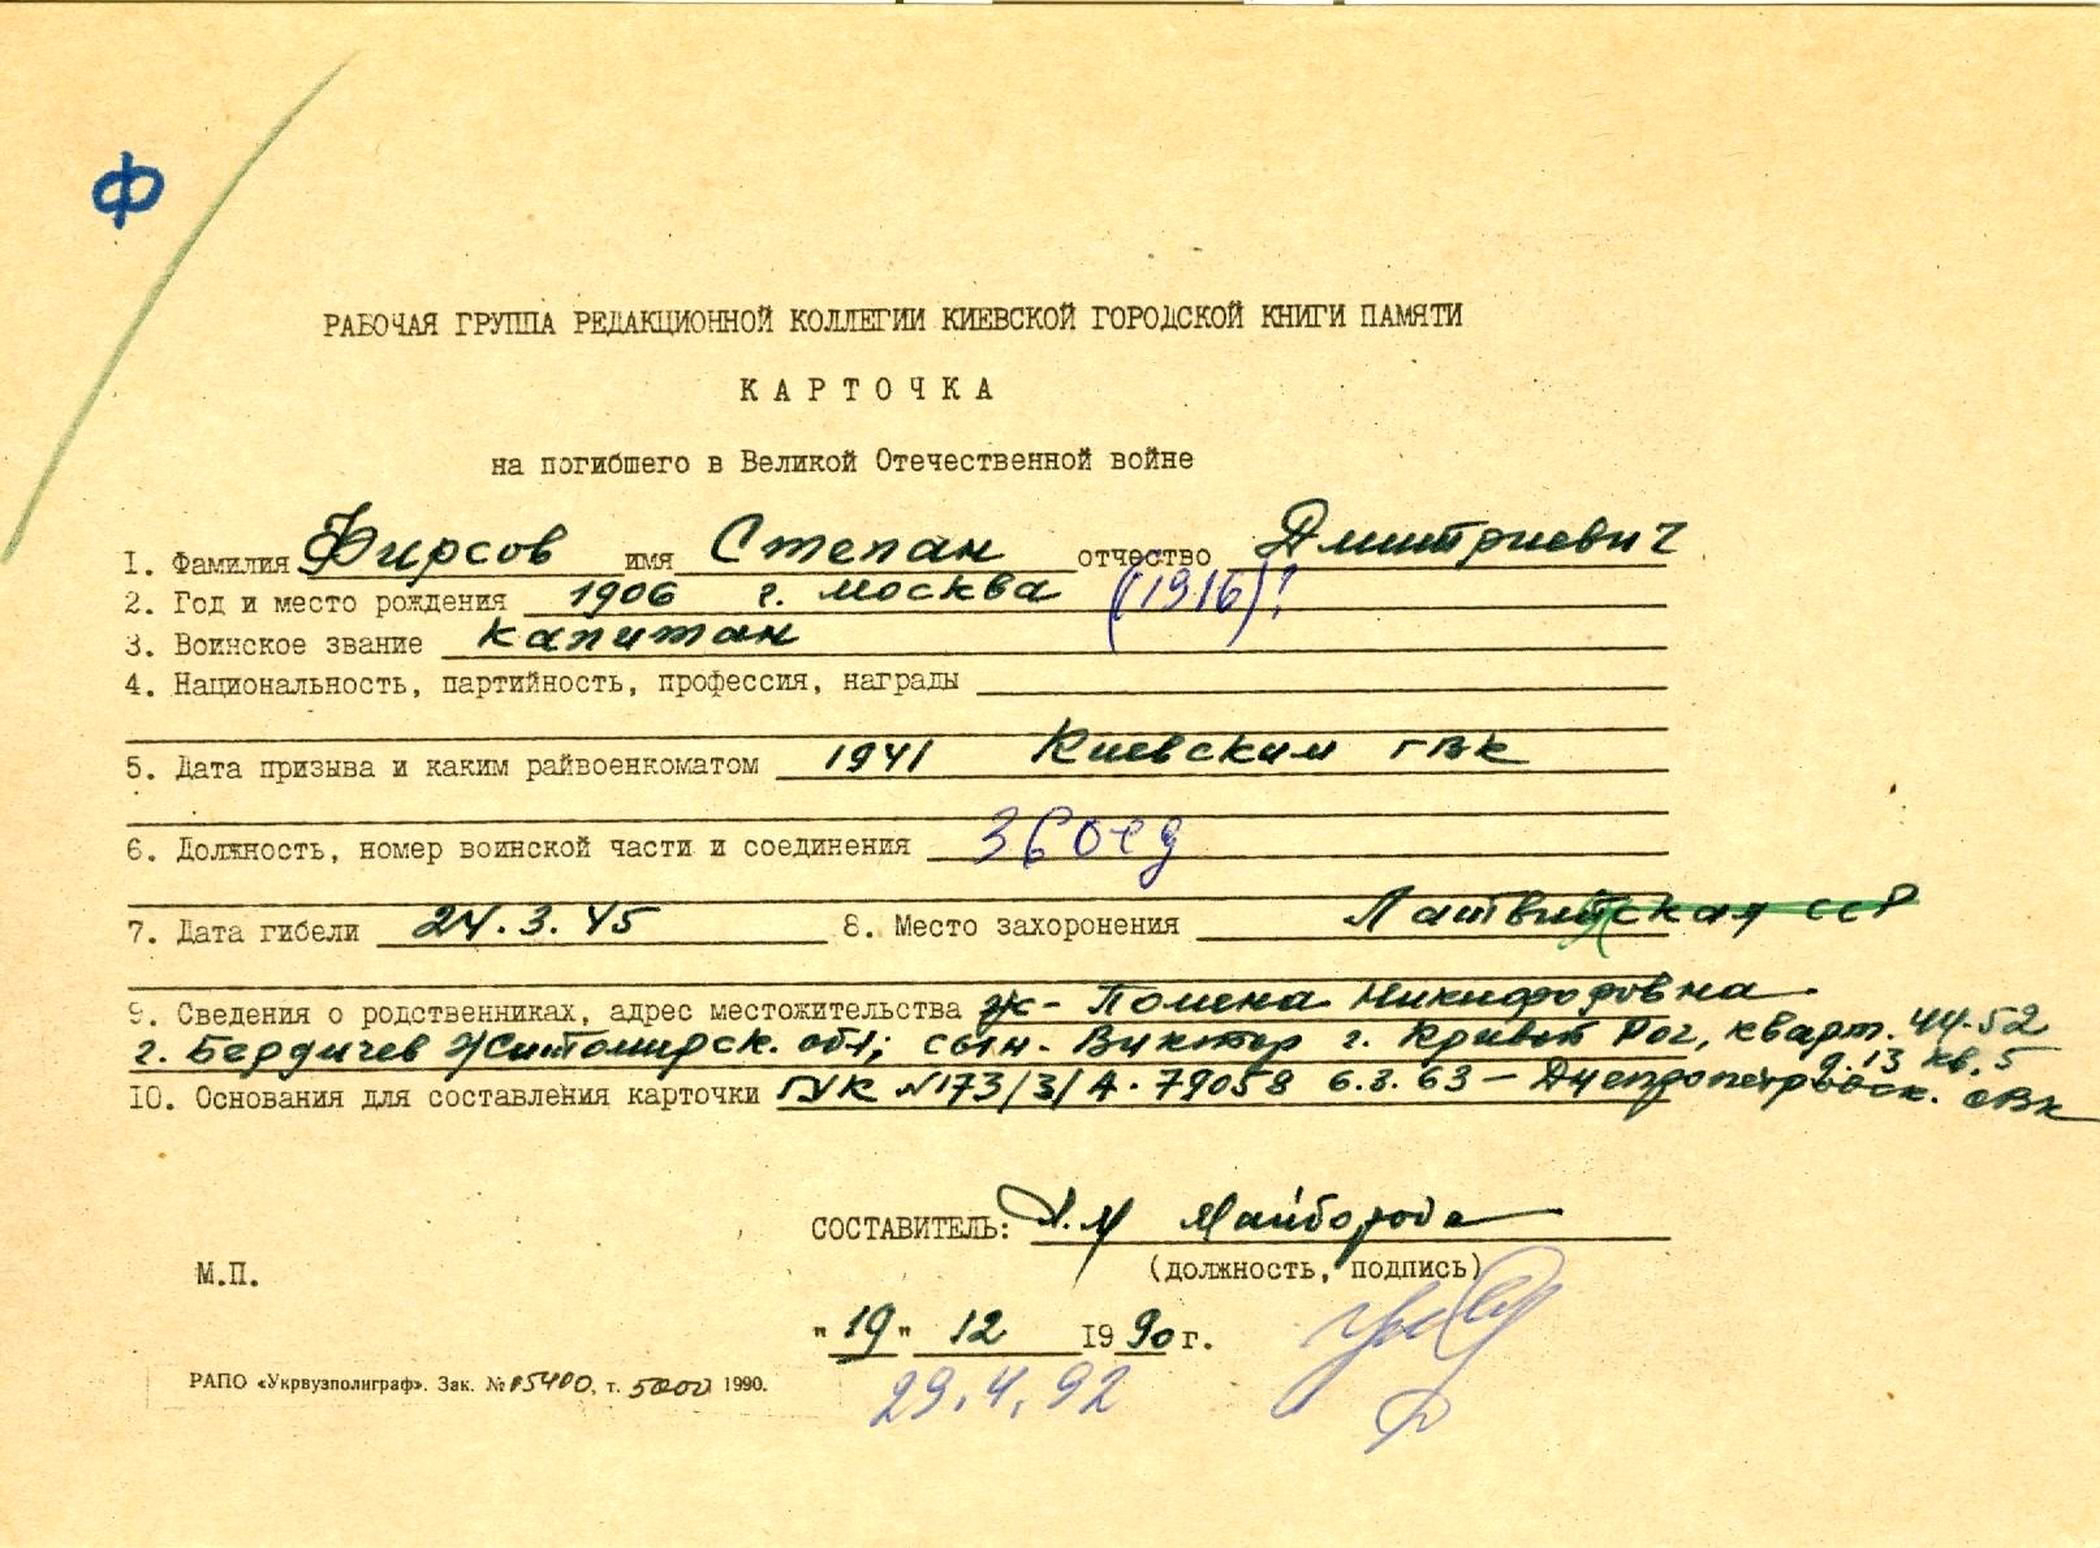 Ф
РАБОЧАЯ ГРУППА РЕДАКЦИОННОЙ КОЛЛЕГИИ КИЕВСКОЙ ГОРОДСКОЙ КНИГИ ПАМЯТИ
КАРТОЧКА
на погибшего в Великой Отечественной войне
I. Фамилия Фирсов имя Степан отчество Дмитриевич
2. Год и место рождения 1906 г. Москва (1916)?
3. Воинское звание капитан
4. Национальность, партийность, профессия, награды
5. Дата призыва и каким райвоенкоматом 1941 Киевским ГВК
6. Должность, номер воинской части и соединения
7. Дата гибели 24.3.45 8. Место захоронения Латвийская ССР
9. Сведения о родственниках, адрес местожительства ж - Никифоровна
г. Бердичев Житомирск. обл; сын - Виктор г. Кривой Рог, кварт. 44-52
д. 13 кв. 5
10. Основания для составления карточки ГУК №173/3/А-79058 6.3.63 - Днепропетровск. ОВК
СОСТАВИТЕЛЬ: Майборода
(должность, подпись)
М.П.
"19" 12 1990 г.
29.4.92
РАПО «Укрвузполиграф». Зак. № 15400, т. 5000 1990.